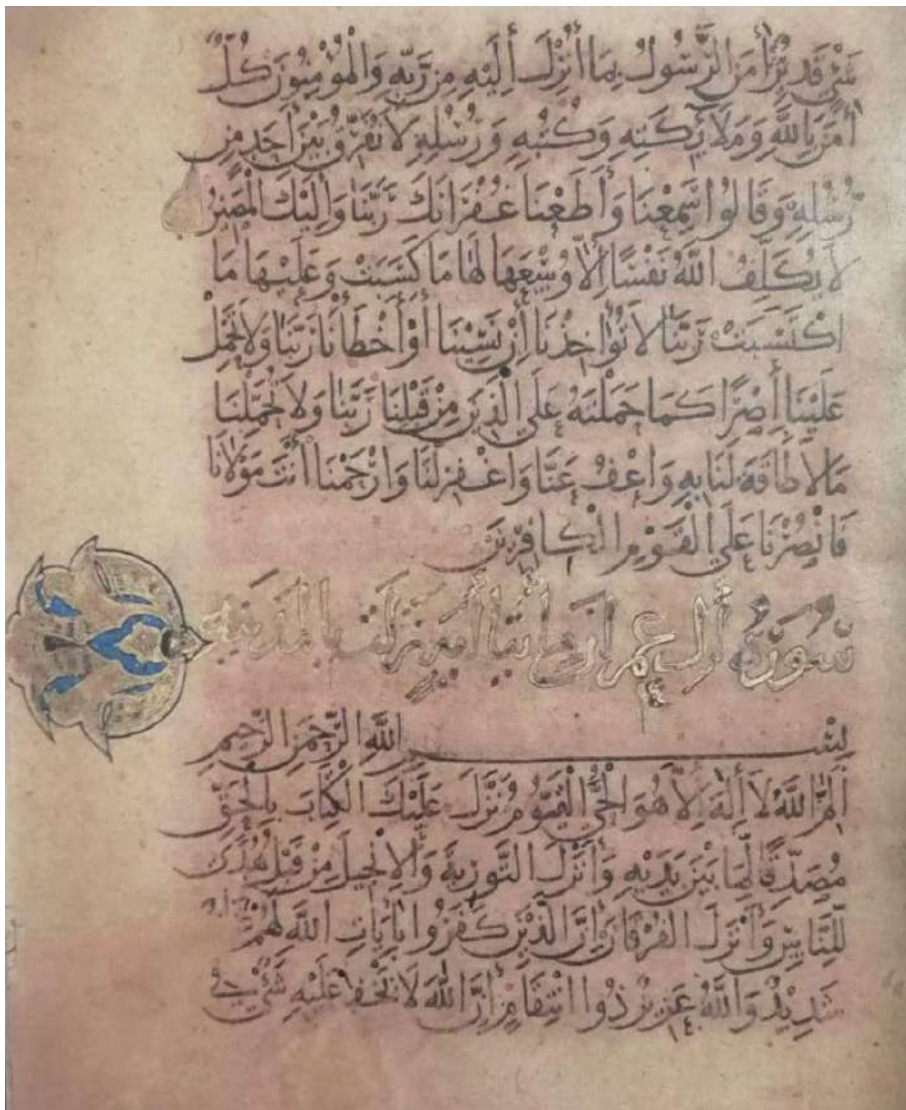 شَيْءٍ قَدِيرٌ اٰمَنَ الرَّسُولُ بِمَا أُنْزِلَ أِلَيْهِ مِنْ رَبِّهِ وَالْمُؤْمِنُونَ كُلٌّ
اٰمَنَ بِاللَّهِ وَمَلَائِكَتِهِ وَكُتُبِهِ وَرُسُلِهِ لَا نُفَرِّقُ بَيْنَ أَحَدٍ مِنْ
رُسُلِهِ وَقَالُوا سَمِعْنَا وَأَطَعْنَا غُفْرَانَكَ رَبَّنَا وَإِلَيْكَ الْمَصِيرُ
لَا يُكَلِّفُ اللَّهُ نَفْسًا إِلَّا وُسْعَهَا لَهَا مَا كَسَبَتْ وَعَلَيْهَا مَا
اكْتَسَبَتْ رَبَّنَا لَا تُؤَاخِذْنَا أِنْ نَسِينَا أَوْ أَخْطَأْنَا رَبَّنَا وَلَا تَحْمِلْ
عَلَيْنَا أِصْرًا كَمَا حَمَلْتَهُ عَلَى الَّذِينَ مِنْ قَبْلِنَا رَبَّنَا وَلَا تُحَمِّلْنَا
مَا لَا طَاقَةَ لَنَا بِهِ وَاعْفُ عَنَّا وَاغْفِرْ لَنَا وَارْحَمْنَا أَنْتَ مَوْلَانَا
فَانْصُرْنَا عَلَى الْقَوْمِ الْكَافِرِينَ
سُورَةُ اٰل عِمْرَانَ مِائَتَا اٰيَة نزلت بالمدينة
بِسْمِ اللَّهِ الرَّحْمَنِ الرَّحِيمِ
الٓمٓ اللَّهُ لَا أِلَهَ إِلَّا هُوَ الْحَيُّ الْقَيُّومُ نَزَّلَ عَلَيْكَ الْكِتَابَ بِالْحَقِّ
مُصَدِّقًا لِمَا بَيْنَ يَدَيْهِ وَأَنْزَلَ التَّوْرِيةَ وَالْإِنْجِيلَ مِنْ قَبْلُ هُدًى
لِلنَّاسِ وَأَنْزَلَ الْفُرْقَانَ إِنَّ الَّذِينَ كَفَرُوا بِاٰيَاتِ اللَّهِ لَهُمْ عَذَابٌ
شَدِيدٌ وَاللَّهُ عَزِيزٌ ذُوا انْتِقَامٍ أِنَّ اللَّهَ لَا يَخْفَا عَلَيْهِ شَيْءٌ فِي